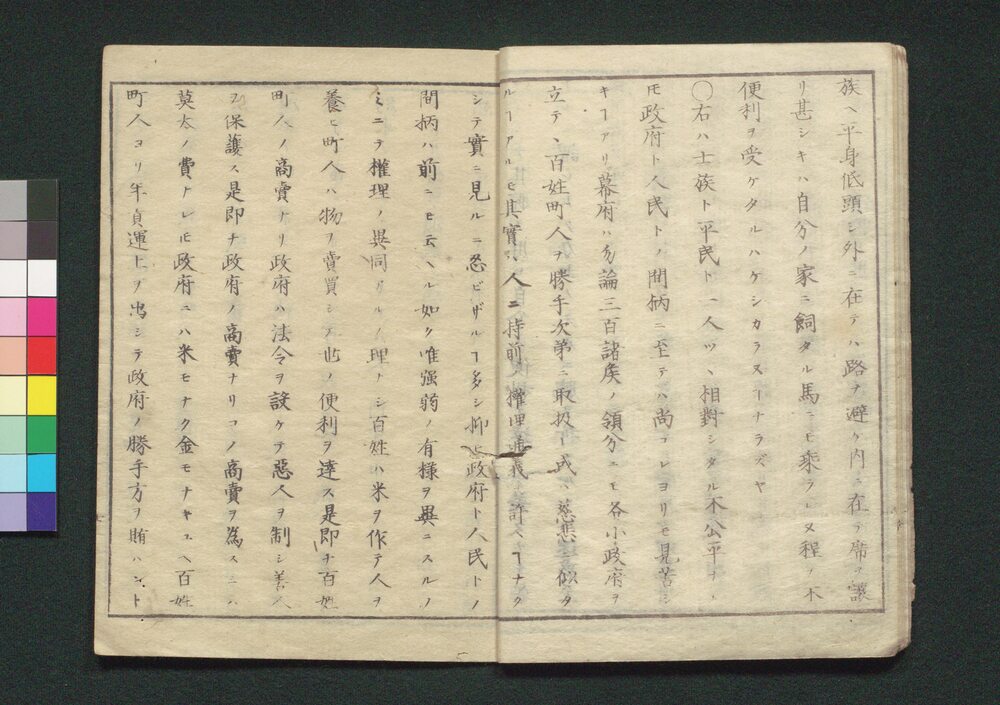 族ヘ平身低頭シ外ニ在テハ路ヲ避ケ内ニ在テ席ヲ讓
リ甚シキハ自分ノ家ニ飼タル馬ニモ乘ラレヌ程ノ不
便利ヲ受ケタルハケシカラヌヿナラズヤ
○右ハ士族ト平民ト一人ツヽ相對シタル不公平ナ
レ𪜈政府ト人民トノ間柄ニ至テハ尚コレヨリモ見苦シ
キヿアリ幕府ハ勿論三百諸矦ノ領分ニモ各小政府ヲ
立テヽ百姓町人ヲ勝手次第ニ取扱ヒ或ハ慈悲ニ似タ
ルヿアルモ其實ハ人ニ持前ノ權理通義ヲ許スヿナク
シテ實ニ見ルニ忍ビザルヿ多シ抑モ政府ト人民トノ
間柄ハ前ニモ云ヘル如ク唯強弱ノ有樣ヲ異ニスルノ
ミニテ權理ノ異同アルノ理ナシ百姓ハ米ヲ作テ人ヲ
養ヒ町人ハ物ヲ賣買シテ世ノ便利ヲ達ス是即チ百姓
町人ノ商賣ナリ政府ハ法令ヲ設ケテ惡人ヲ制シ善人
ヲ保護ス是即チ政府ノ商賣ナリコノ商賣ヲ為スニハ
莫太ノ費ナレ𪜈政府ニハ米モナク金モナキユヘ百姓
町人ヨリ年貢運上ヲ出シテ政府ノ勝手方ヲ賄ハント